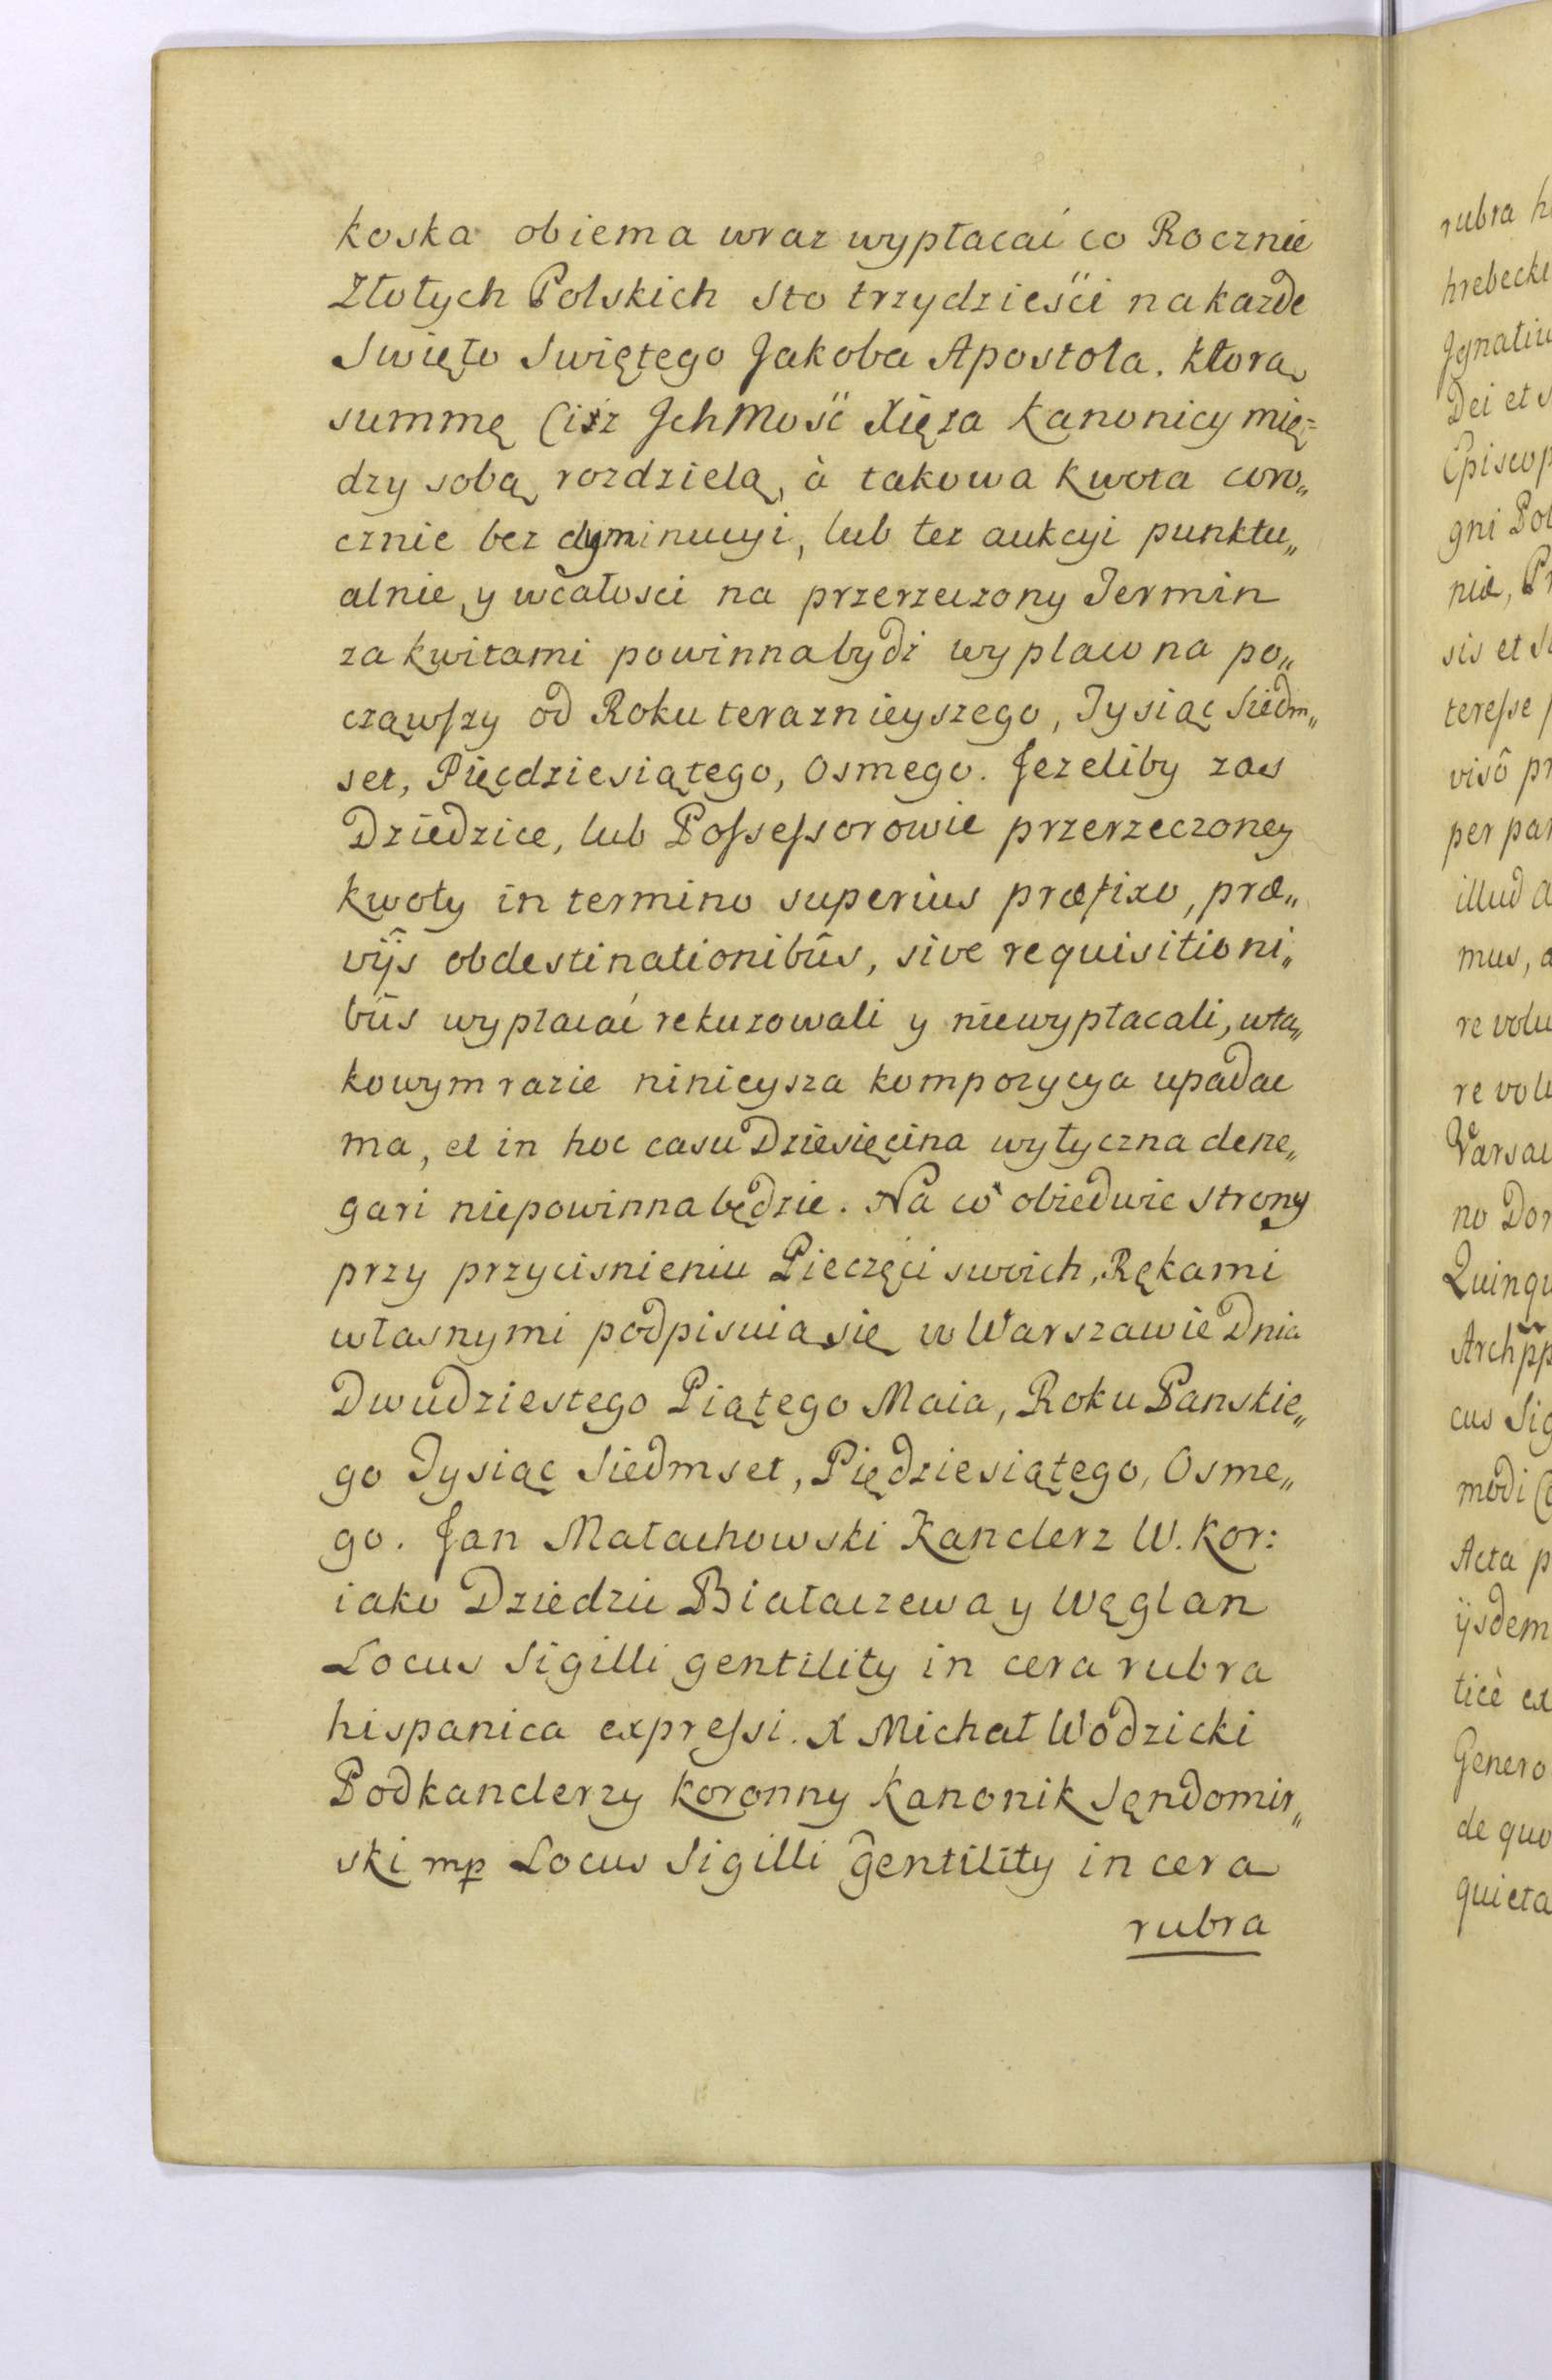 koska obiema wraz wypłacać co Rocznie
Złotych Polskich Sto trzydzieści na kazde
Swięto Swiętego Jakoba Apostoła. Ktorą
summę Ciż Jch Mość Xięza Kanonicy mię=
dzy sobą rozdzielą, à takowa kwota coro„
cznie bez dyminucyi, lub tez aukcyi punktu„
alnie, y wcałosci na przerzeczony Termin
za kwitami powinna bydź wypłacona po„
cząwszy od Roku teraznieyszego, Tysiąc Siedm„
set, Pięcdziesiątego, Osmego. Jezeliby zas
Dziedzice, lub Possessorowie przerzeczoney
kwoty in termino superius præfixo, præ„
vijs obdestinationibûs, sive requisitioni„
bûs wypłacać rekuzowali y niewypłacali, wta„
kowym razie ninieysza kompozycya upadac
ma, et in hoc casu Dziesięcina wytyczna dene„
gari niepowinna będzie. Na co obiedwie strony
przy przycisnieniu Pieczęci swoich, Rękami
własnymi podpisuią się w Warszawie Dnia
Dwudziestego Piątego Maia, Roku Panskie„
go Tysiąc Siedmset, Piędziesiątego, Osme„
go. Jan Małachowski Kanclerz W. Kor:
iako Dziedzic Białaczewa y Węglan
Locus Sigilli gentility in cera rubra
hispanica expressi. X Michał Wodzicki
Podkanclerzy Koronny Kanonik Sędomir„
ski mp Locus Sigilli gentility in cera
rubra
rubra
hrebecki
Jgnatiu
Dei et
Episcop
gni Pol
niæ, Pr
sis et
teresse
visô
per par
illud
mus,
re volu
re volu
Varsa
no Do
Quinqu
Arch
cus Sig
modi
Acta p
ijsdem
ticè ex
Genero
de quo
quieta